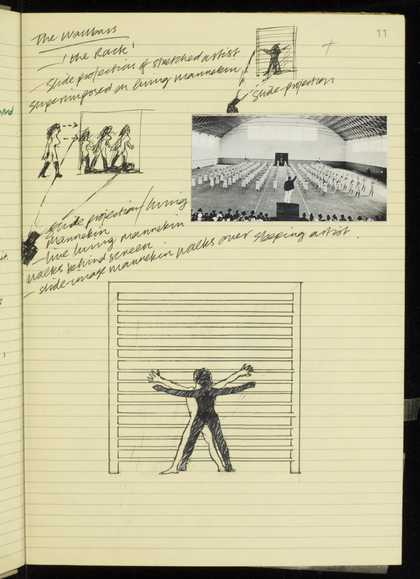 11
The Wallbars
'the Rack'
- Slide projection of stretched artist
superimposed on living mannekin
Slide projection
- slide projection/living
mannekin
- live living mannekin
walks behind screen
- slide image mannekin walks over sleeping artist.